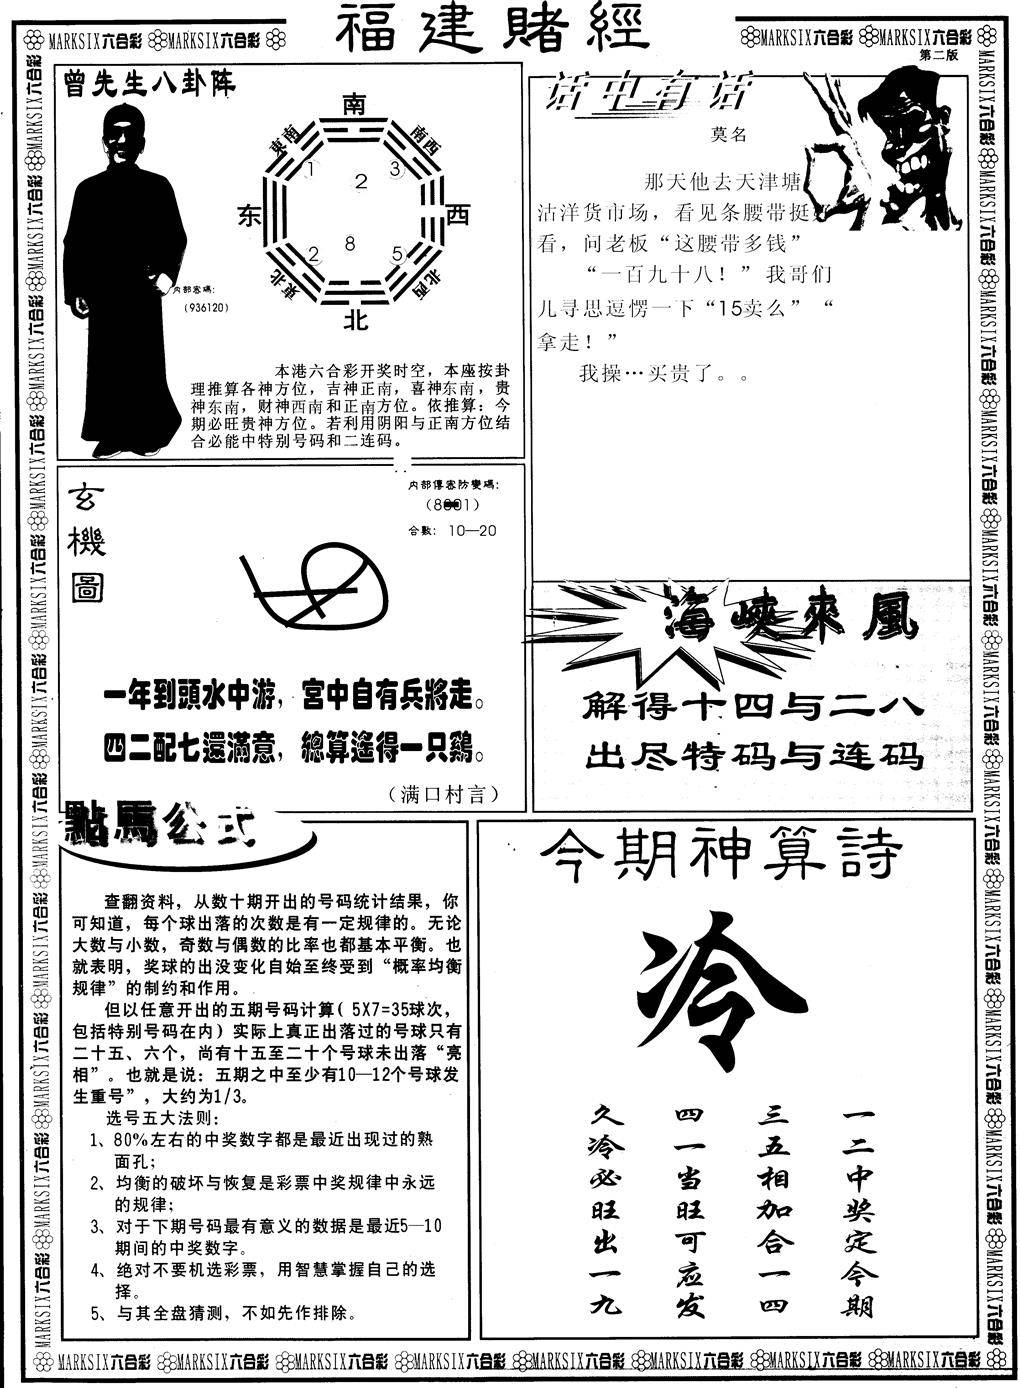 福建賭經
MARKSIX六合彩 MARKSIX六合彩
MARKSIX六合彩 MARKSIX六合彩
第二版
曾先生八卦阵
南
東南
南西
1
2
3
东
西
2
8
5
東北
北西
北
内部密碼:
(936120)
本港六合彩开奖时空，本座按卦
理推算各神方位，吉神正南，喜神东南，贵
神东南，财神西南和正南方位。依推算：今
期必旺贵神方位。若利用阴阳与正南方位结
合必能中特别号码和二连码。
话中有话
莫名
那天他去天津塘
沽洋货市场，看见条腰带挺好
看，问老板“这腰带多钱”
“一百九十八！”我哥们
儿寻思逗愣一下“15卖么”“
拿走！”
我操…买贵了。。
玄機圖
内部傳密防變碼:
合數: 10—20
一年到頭水中游，宮中自有兵將走。
四二配七還滿意，總算遙得一只鷄。
（满口村言）
海峽來風
解得十四与二八
出尽特码与连码
點馬公式
查翻资料，从数十期开出的号码统计结果，你
可知道，每个球出落的次数是有一定规律的。无论
大数与小数，奇数与偶数的比率也都基本平衡。也
就表明，奖球的出没变化自始至终受到“概率均衡
规律”的制约和作用。
但以任意开出的五期号码计算( 5X7=35球次，
包括特别号码在内）实际上真正出落过的号球只有
二十五、六个，尚有十五至二十个号球未出落“亮
相”。也就是说：五期之中至少有10—12个号球发
生重号”，大约为1/3。
选号五大法则:
1、80%左右的中奖数字都是最近出现过的熟
面孔;
2、均衡的破坏与恢复是彩票中奖规律中永远
的规律;
3、对于下期号码最有意义的数据是最近5—10
期间的中奖数字。
4、绝对不要机选彩票，用智慧掌握自己的选
择。
5、与其全盘猜测，不如先作排除。
今期神算詩
冷
一二中奖定今期
三五相加合一四
四一当旺可应发
久冷必旺出一九
MARKSIX六合彩 MARKSIX六合彩 MARKSIX六合彩 MARKSIX六合彩 MARKSIX六合彩 MARKSIX六合彩 MARKSIX六合彩 MARKSIX六合彩